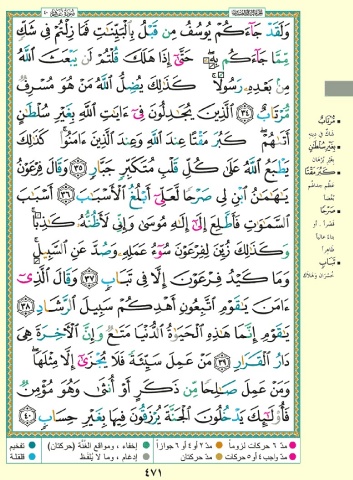 وَلَقَدْ جَآءَكُمْ يُوسُفُ مِن قَبْلُ بِٱلْبَيِّنَٰتِ فَمَا زِلْتُمْ فِى شَكٍّ
مِّمَّا جَآءَكُم بِهِۦ حَتَّىٰٓ إِذَا هَلَكَ قُلْتُمْ لَن يَبْعَثَ ٱللَّهُ
مِنۢ بَعْدِهِۦ رَسُولًا كَذَٰلِكَ يُضِلُّ ٱللَّهُ مَنْ هُوَ مُسْرِفٌ
مُّرْتَابٌ ٣٤ ٱلَّذِينَ يُجَٰدِلُونَ فِىٓ ءَايَٰتِ ٱللَّهِ بِغَيْرِ سُلْطَٰنٍ
أَتَىٰهُمْ كَبُرَ مَقْتًا عِندَ ٱللَّهِ وَعِندَ ٱلَّذِينَ ءَامَنُوا۟ كَذَٰلِكَ
يَطْبَعُ ٱللَّهُ عَلَىٰ كُلِّ قَلْبِ مُتَكَبِّرٍ جَبَّارٍ ٣٥ وَقَالَ فِرْعَوْنُ
يَٰهَٰمَٰنُ ٱبْنِ لِى صَرْحًا لَّعَلِّىٓ أَبْلُغُ ٱلْأَسْبَٰبَ ٣٦ أَسْبَٰبَ
ٱلسَّمَٰوَٰتِ فَأَطَّلِعَ إِلَىٰٓ إِلَٰهِ مُوسَىٰ وَإِنِّى لَأَظُنُّهُۥ كَٰذِبًا
وَكَذَٰلِكَ زُيِّنَ لِفِرْعَوْنَ سُوٓءُ عَمَلِهِۦ وَصُدَّ عَنِ ٱلسَّبِيلِ
وَمَا كَيْدُ فِرْعَوْنَ إِلَّا فِى تَبَابٍ ٣٧ وَقَالَ ٱلَّذِىٓ
ءَامَنَ يَٰقَوْمِ ٱتَّبِعُونِ أَهْدِكُمْ سَبِيلَ ٱلرَّشَادِ ٣٨
يَٰقَوْمِ إِنَّمَا هَٰذِهِ ٱلْحَيَوٰةُ ٱلدُّنْيَا مَتَٰعٌ وَإِنَّ ٱلْءَاخِرَةَ هِىَ
دَارُ ٱلْقَرَارِ ٣٩ مَنْ عَمِلَ سَيِّئَةً فَلَا يُجْزَىٰٓ إِلَّا مِثْلَهَا
وَمَنْ عَمِلَ صَٰلِحًا مِّن ذَكَرٍ أَوْ أُنثَىٰ وَهُوَ مُؤْمِنٌ
فَأُو۟لَٰٓئِكَ يَدْخُلُونَ ٱلْجَنَّةَ يُرْزَقُونَ فِيهَا بِغَيْرِ حِسَابٍ ٤٠
مُرْتَابٌ
شاكٌّ في دينه
بِغَيْرِ سُلْطَٰنٍ
بغير بُرهان
كَبُرَ مَقْتًا
عظم جدالهم
بُغضا
صَرْحًا
قصرا . أو
بناءً عاليا
ظاهرا
تَبَابٍ
خُسران وهلاك
مدّ ٦ حركات لزوماً
مدّ ٢ أو ٤ أو ٦ جوازاً
إخفاء، ومواقع الغُنَّة (حركتان)
تفخيم
مدّ واجب ٤ أو ٥ حركات
مدّ حركتان
إدغام، وما لا يُلفَظ
قلقلة
٤٧١